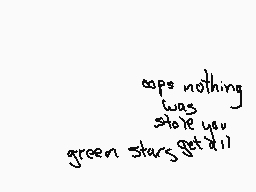 oops nothing
was
stole you
green stars get all